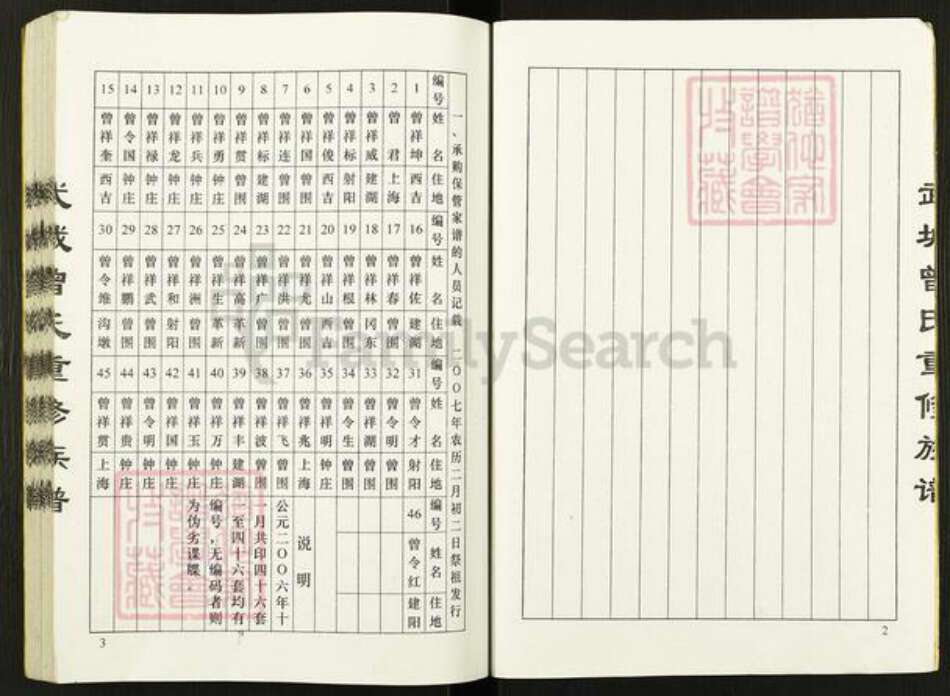 武城曾氏重修族谱
2
一、承购保管家谱的人员记载 二〇〇七年农历二月初二日祭祖发行
编号 姓名 住地 编号 姓名 住地 编号 姓名 住地 编号 姓名 住地
1 曾祥坤 西吉 16 曾祥佐 建湖 31 曾令才 射阳 46 曾令红 建阳
2 曾君 上海 17 曾祥春 曾围 32 曾令明 曾围
3 曾祥威 建湖 18 曾祥林 冈东 33 曾祥湖 曾围
4 曾祥标 射阳 19 曾祥根 曾围 34 曾令生 曾围
5 曾祥俊 西吉 20 曾祥山 西吉 35 曾祥明 钟庄
6 曾祥国 曾围 21 曾祥龙 曾围 36 曾祥兆 上海
7 曾祥连 曾围 22 曾祥洪 曾围 37 曾祥飞 曾围
8 曾祥标 建湖 23 曾祥广 曾围 38 曾祥波 曾围
9 曾祥贯 曾围 24 曾祥高 革新 39 曾祥丰 建湖
10 曾祥勇 钟庄 25 曾祥生 革新 40 曾祥万 钟庄
11 曾祥兵 钟庄 26 曾祥洲 曾围 41 曾祥玉 钟庄
12 曾祥龙 钟庄 27 曾祥和 射阳 42 曾祥国 钟庄
13 曾祥禄 钟庄 28 曾祥武 曾围 43 曾令明 钟庄
14 曾令国 钟庄 29 曾祥鹏 曾围 44 曾祥贵 钟庄
15 曾祥奎 西吉 30 曾令维 沟墩 45 曾祥贯 上海
说明
公元二〇〇六年十
一月共印四十六套
一至四十六套均有
编号，无编码者则
为伪劣谍牒。
3
武城曾氏重修族谱
FamilySearch